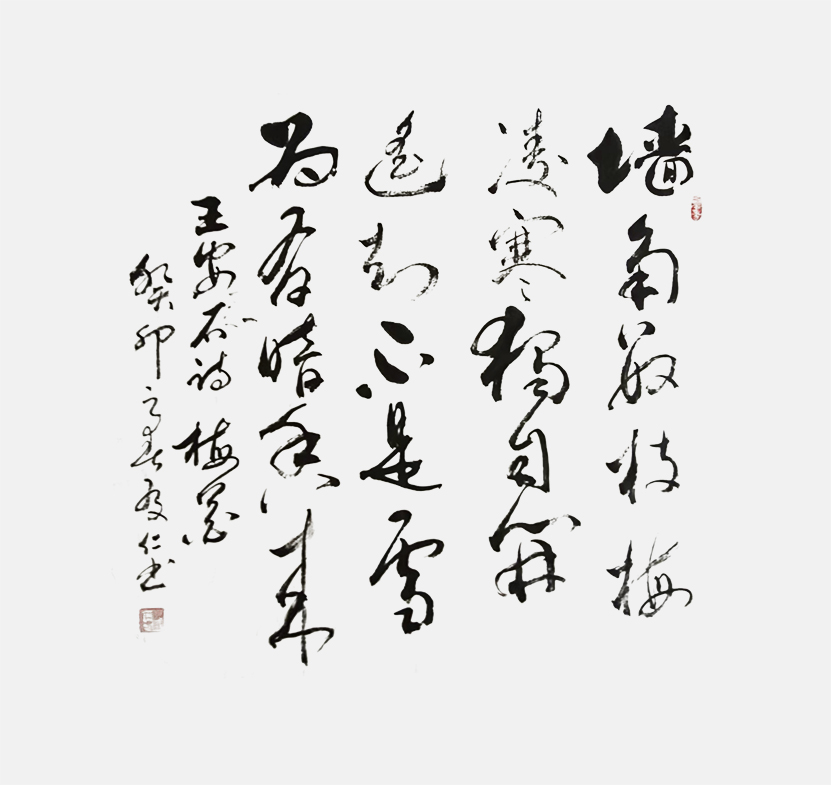 墙角数枝梅
凌寒独自開
遥知不是雪
为有暗香来
王安石诗 梅花
癸卯之春 仁书